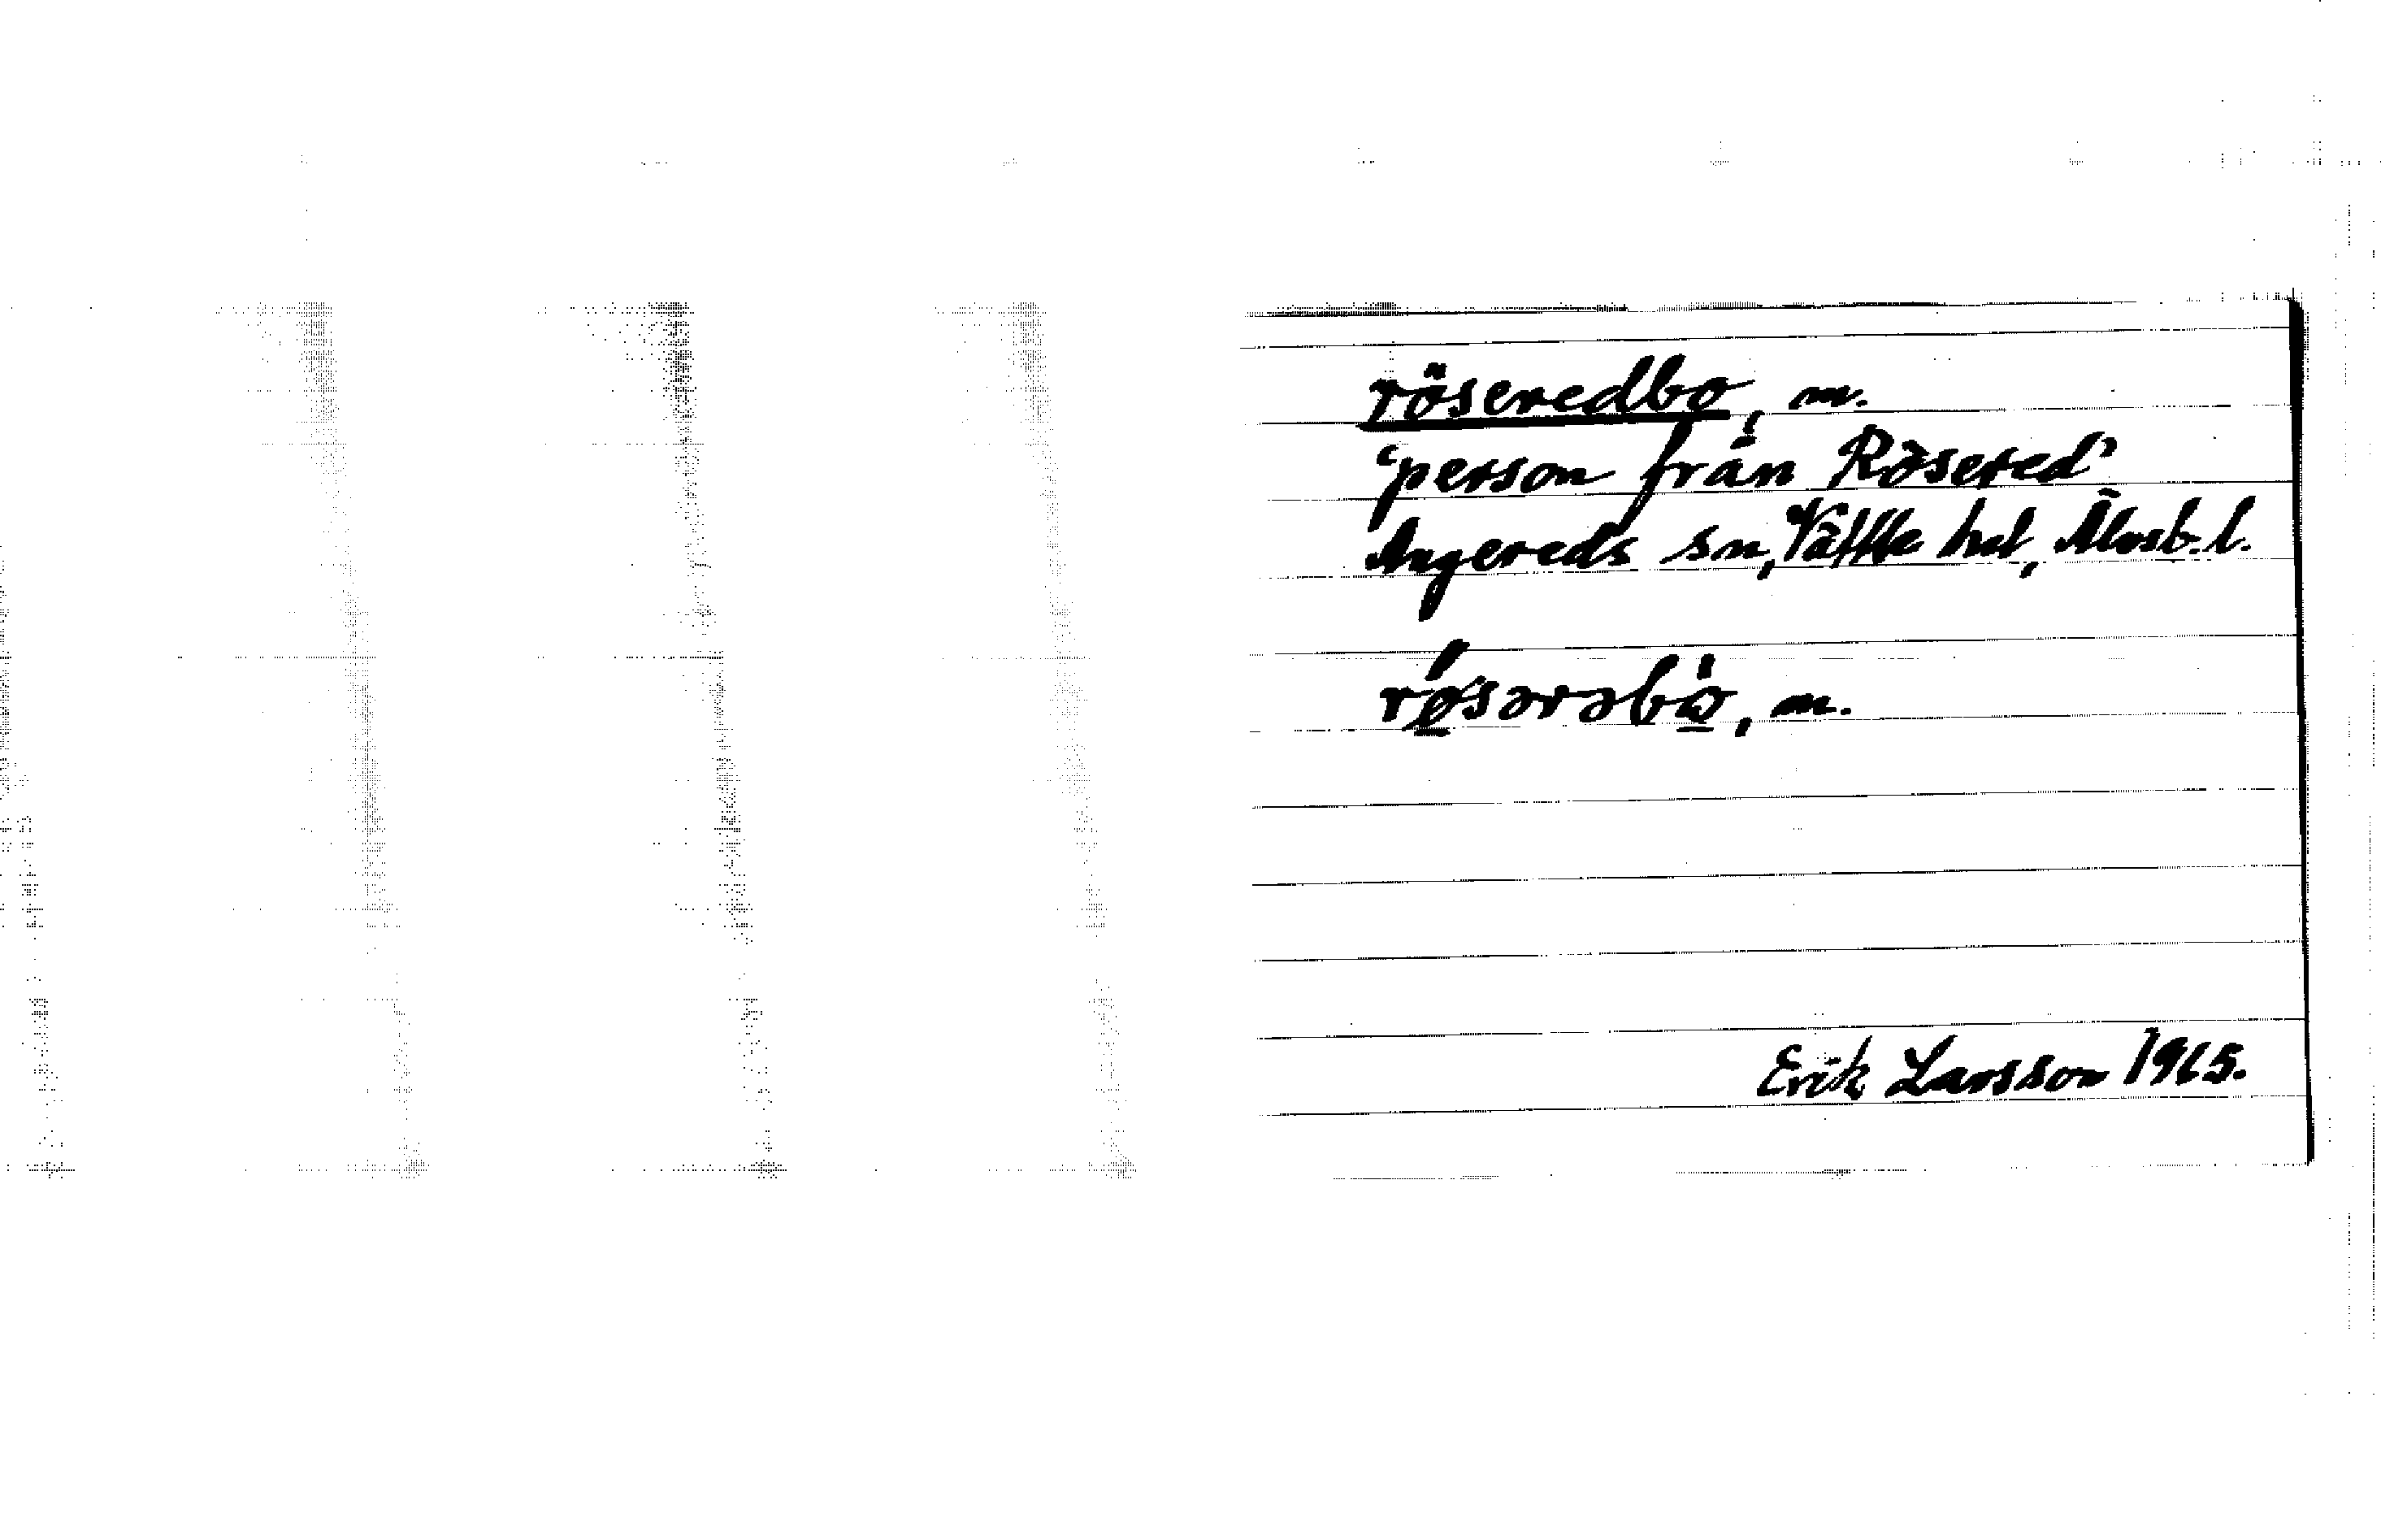 röseredbo, m.
‘person från Rösered’
Angereds sn, Vättle hd, Älvsb. l.
rǿ̲sərəbò̲, m.
Erik Larsson 1965.